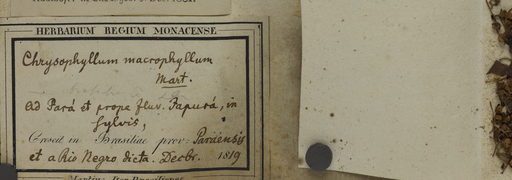 HERBARIUM REGIUM MONACENSE
Chrysophyllum macrophyllum
Mart.
Ad Pará et prope fluv. Japurá, in
sylvis,
Crescit in Brasiliae prov. Paraënsis
et a Rio Negro dicta. Decbr. 1819